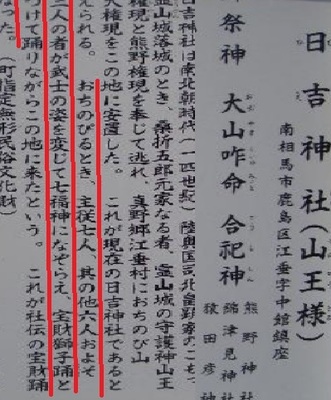 日吉神社(山王様)
ひえ
南相馬市鹿島区江垂字中館鎮座
祭神 大山咋命 合祀神
おおやまくいのみこと
熊野神社
綿津見神
猿田彦神
日吉神社は南北朝時代(一四世紀)陸奥国司北畠顕家のこもっ
霊山城落城のとき、桑折五郎元家なる者、霊山城の守護神山王
権現と熊野権現を奉じて逃れ、真野郷江垂村におちのび山
大権現をこの地に安置した。 これが現在の日吉神社であると
えられる。 おちのびるとき、主従七人、其の他六人およそ
三人の者が武士の姿を変じて七福神になぞらえ、宝財獅子踊と
つけて踊りながらこの地に来たという。 これが社伝の宝財踊
なった。 (町指定無形民俗文化財)